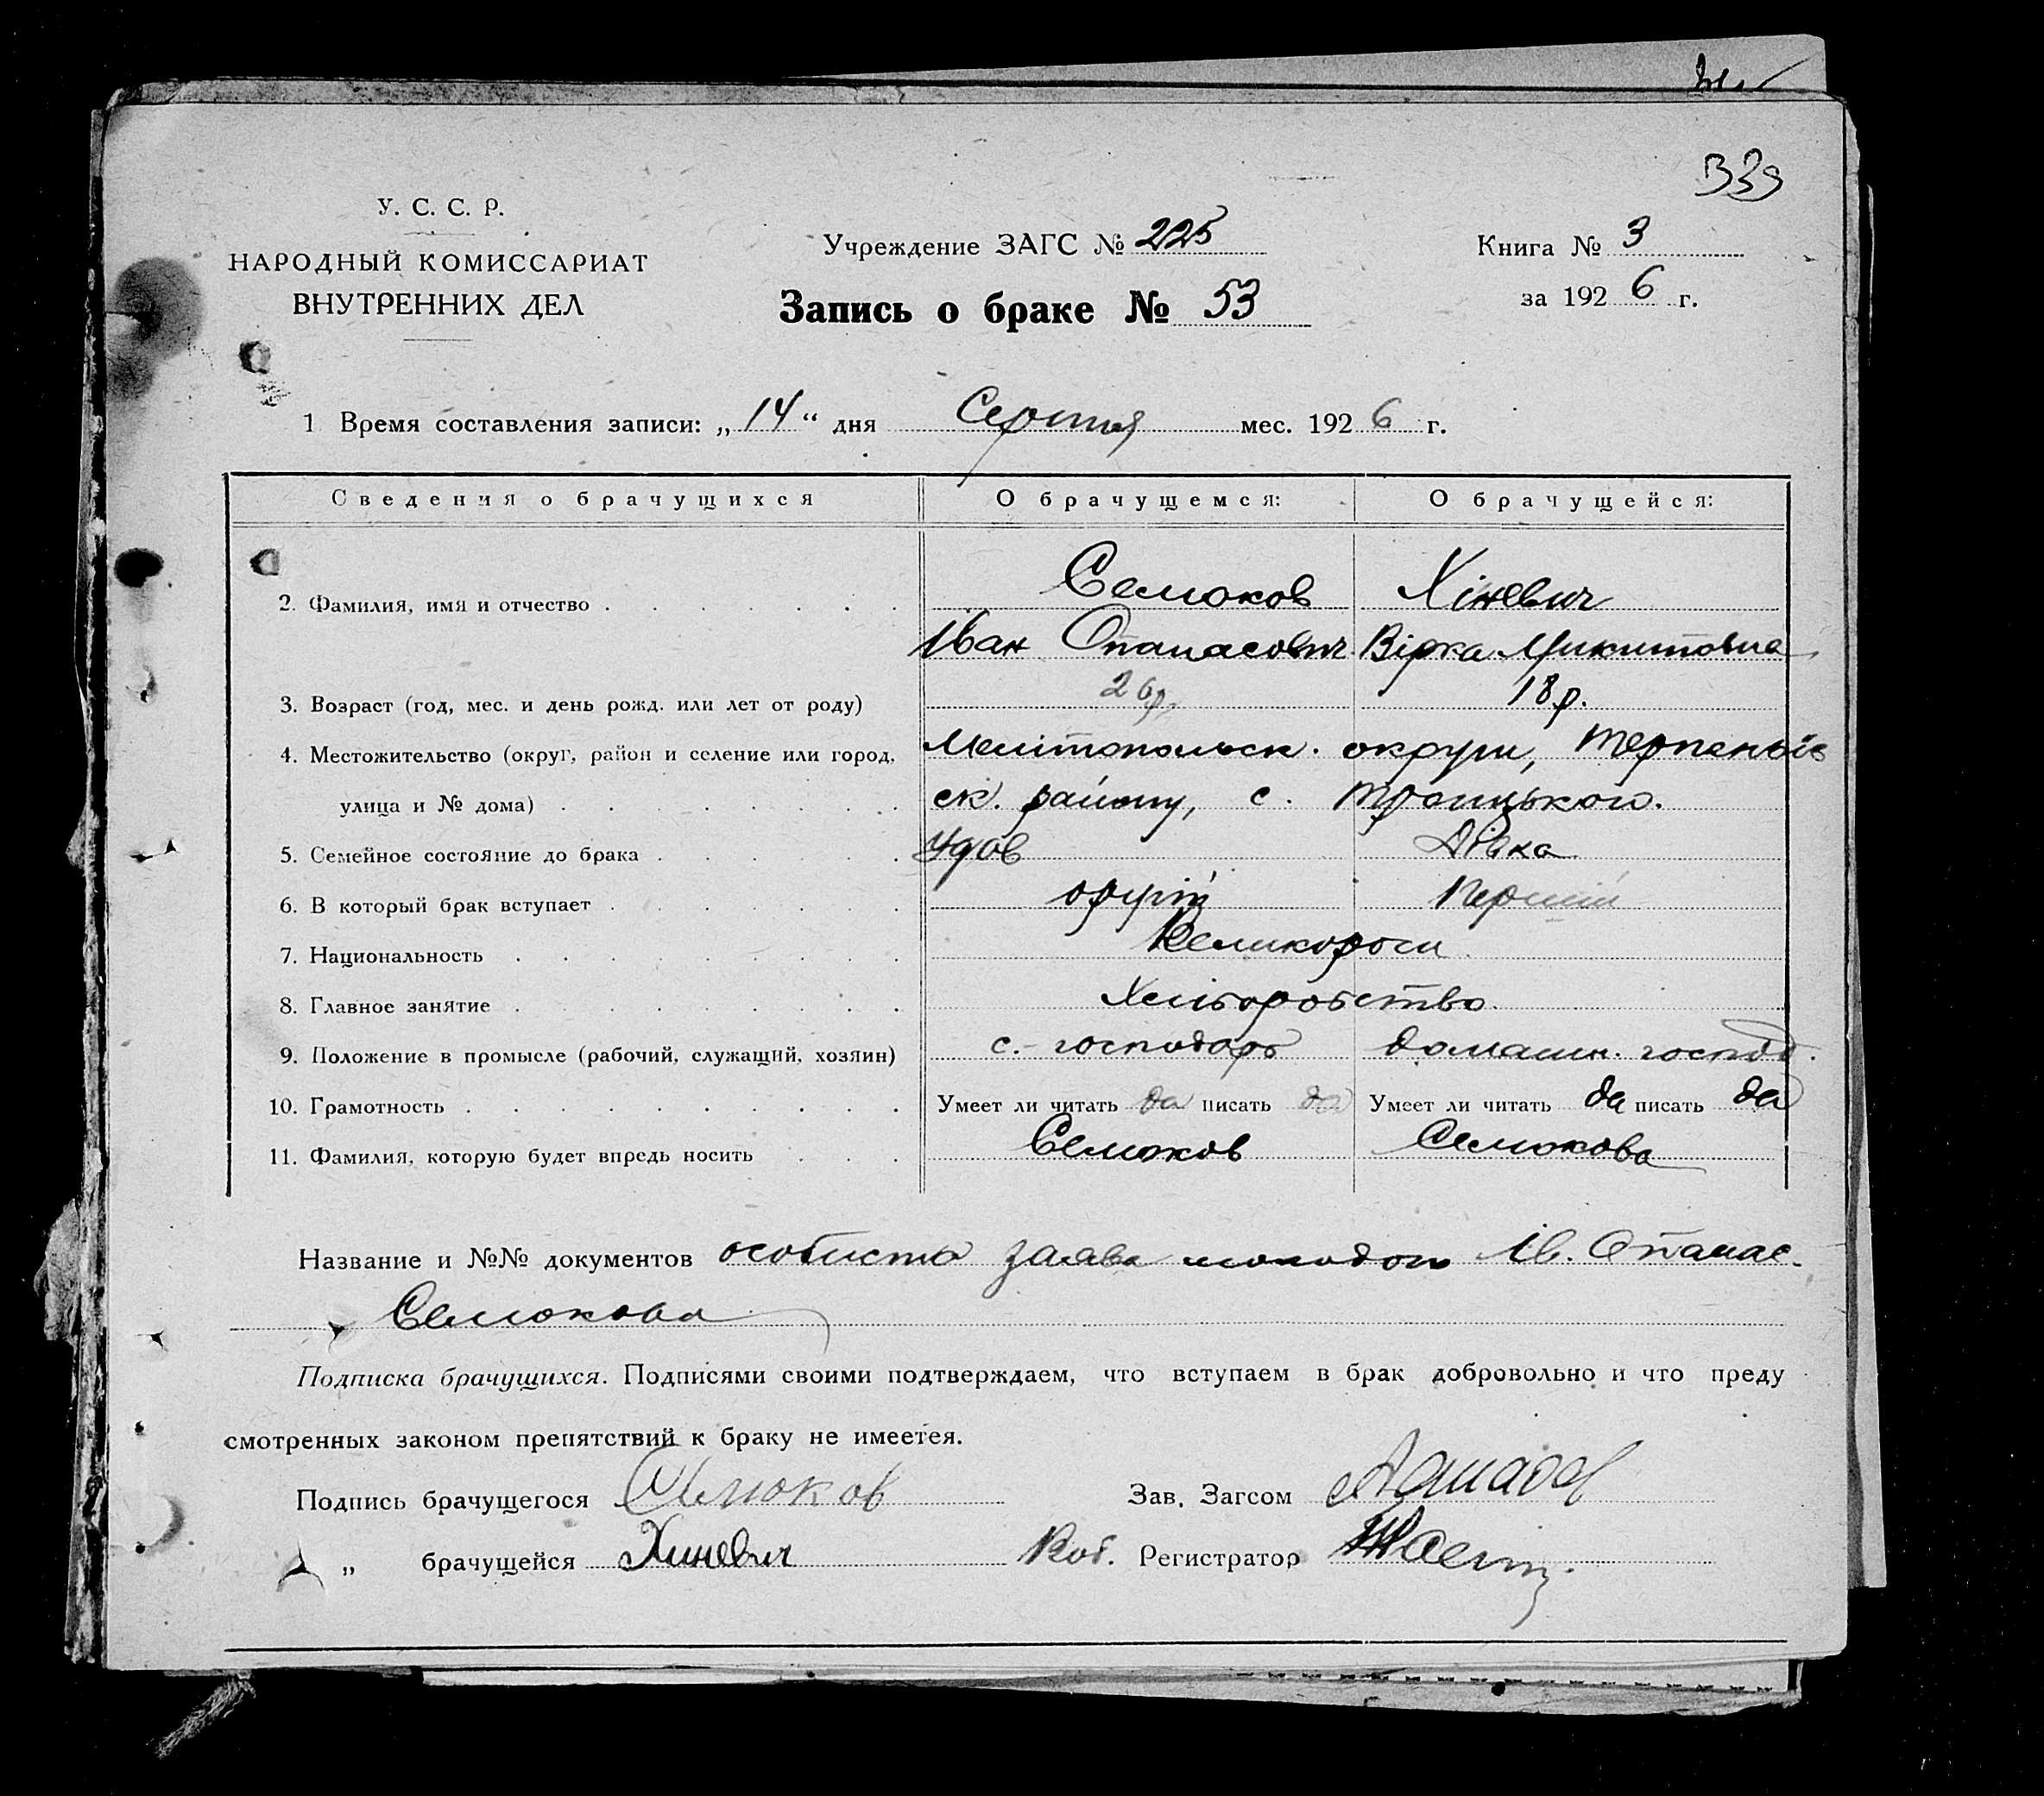 339
У. С. С. Р.
НАРОДНЫЙ КОМИССАРИАТ
ВНУТРЕННИХ ДЕЛ
Учреждение ЗАГС № 225
Книга № 3
Запись о браке № 53
за 1926 г.
1 Время составления записи: „ 14 “ дня Серпня мес. 1926 г.
Сведения о брачущихся О брачущемся: О брачущейся:
2. Фамилия, имя и отчество Семоков Хіневич
Іван Опанасович Вірка Микитовна
3. Возраст (год, мес. и день рожд. или лет от роду) 26р. 18р.
4. Местожительство (округ, район и селение или город, Мелітопольск. округи,
улица и № дома) ск. району, с. Троицького.
5. Семейное состояние до брака Удов Дівка
6. В который брак вступает другій Первий
7. Национальность Великороси
8. Главное занятие Хліборобство
9. Положение в промысле (рабочий, служащий, хозяин) с.-господарь домашн. господ.
10. Грамотность Умеет ли читать да писать да Умеет ли читать да писать да
11. Фамилия, которую будет впредь носить Семоков Семокова
Название и №№ документов особиста заява молодого Ів. Опанас.
Семокова
Подписка брачущихся. Подписями своими подтверждаем, что вступаем в брак добровольно и что преду
смотренных законом препятствий к браку не имеется.
Подпись брачущегося Семоков Зав. Загсом
„ брачущейся Хиневич Регистратор